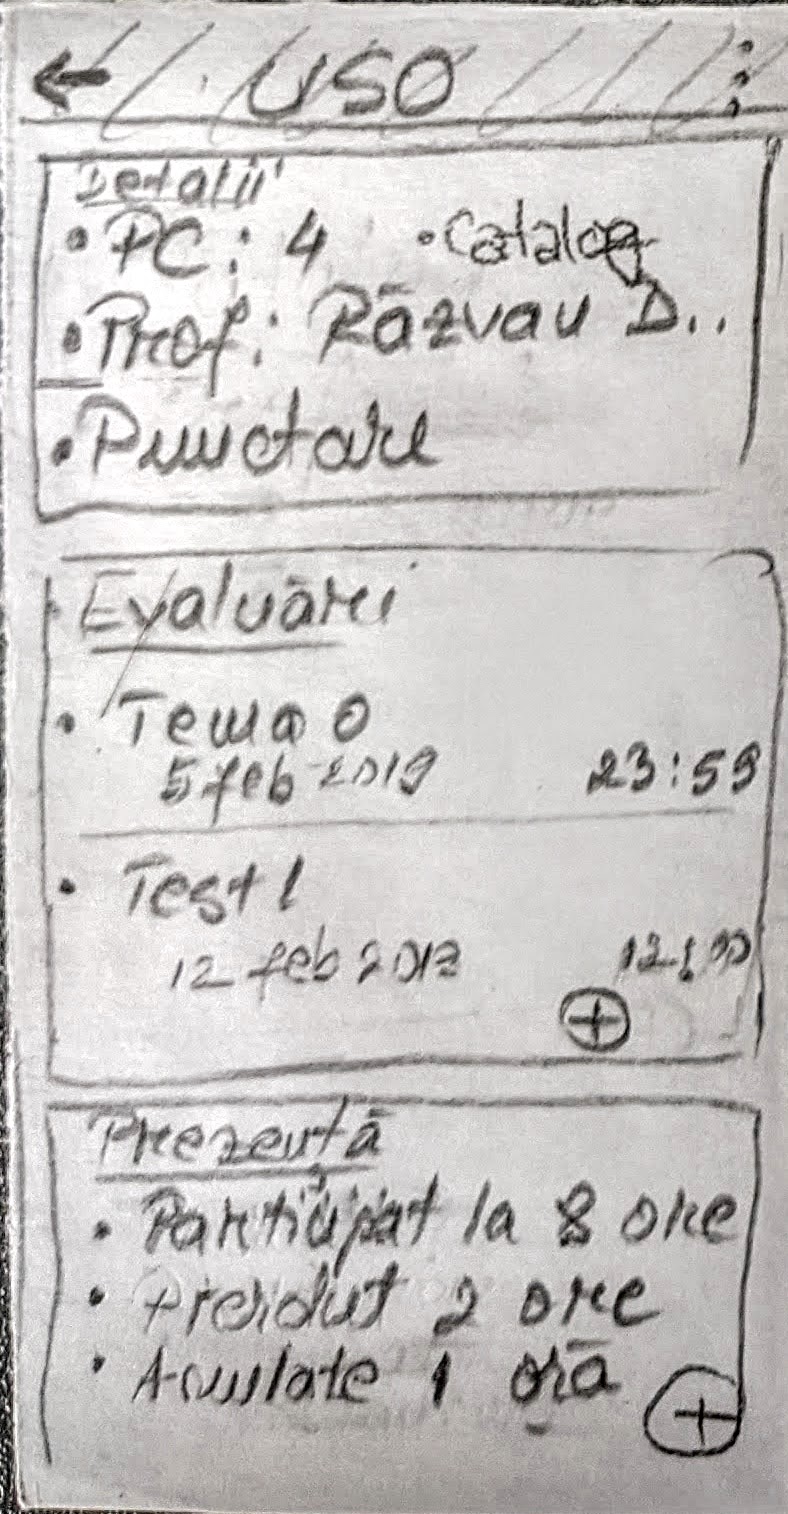 USO
Detalii
• PC: 4 • Catalog
• Prof: Răzvan D..
• Punctare
Evaluări
• Tema 0
5 feb 2019 23:59
• Test 1
12 feb 2019 12:00
Prezență
• Participat la 8 ore
• Pierdut 2 ore
• Anulate 1 oră